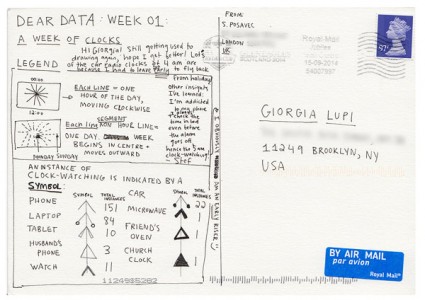 DEAR DATA: WEEK 01:
A WEEK OF CLOCKS
Hi Giorgia! Still getting used to
drawing again, hope I get better! Lots
of the car radio clocks at 4 am are
because I had to leave to fly back
from holiday
LEGEND
00:00
EACH LINE = ONE
HOUR OF THE DAY,
MOVING CLOCKWISE
12:00
SEGMENT
Each line HOUR LINE =
ONE DAY WEEK
BEGINS IN CENTRE +
MOVES OUTWARD
SUNDAY
other insights
I've learned:
I'm addicted
to my phone
+ check the
time in bed
even before
the alarm
goes off
hence the 3 am
clock-watching!
- Stef
(+ I OBVIOUSLY AN EARLY RISER!)
AN INSTANCE OF
CLOCK-WATCHING IS INDICATED BY A
SYMBOL:
SYMBOL TOTAL INSTANCES
PHONE 151
LAPTOP 84
TABLET 10
HUSBAND'S PHONE 3
WATCH 11
SYMBOL TOTAL INSTANCES
CAR 22
MICROWAVE 1
FRIEND'S OVEN 1
CHURCH CLOCK 1
FROM:
S. POSAVEC
LONDON
UK
Royal Mail
15-09-2014
GIORGIA LUPI
11249 BROOKLYN, NY
USA
BY AIR MAIL
par avion
Royal Mail